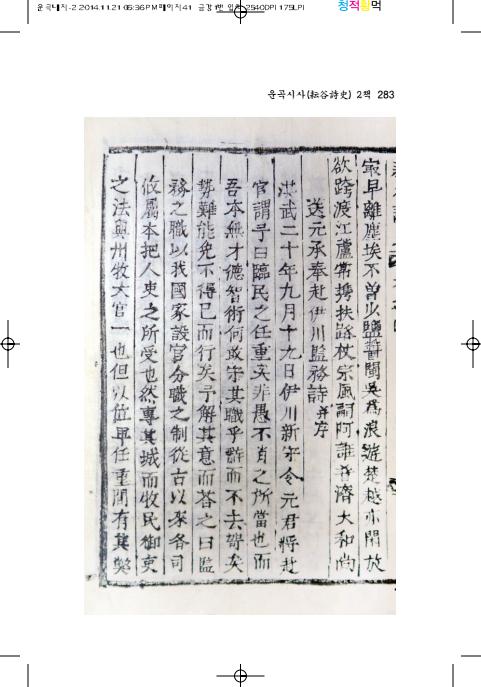 운곡시사-2 2014.11.21 05:36 PM 페이지41
2540DPI 175LPI
청적황먹
운곡시사(耘谷詩史) 2책 283
最早離塵埃不曾少鹽醬閩吳爲浪遊楚越亦閑放
欲跨渡江蘆常携扶路杖宗風嗣阿誰普濟大和尚
送元承奉赴伊川監務詩 幷序
洪武二十年九月十九日伊川新守令元君將赴
官謂予曰臨民之任重矣非愚不肖之所當也而
吾本無才德智術何敢守其職乎辭而不去勢矣
勢難能免不得已而行矣予解其意而答之曰監
務之職以我國家設官分職之制從古以來各司
攸屬本把人吏之所受也然專其城而牧民御吏
之法與州牧大官一也但以位卑任重間有其弊